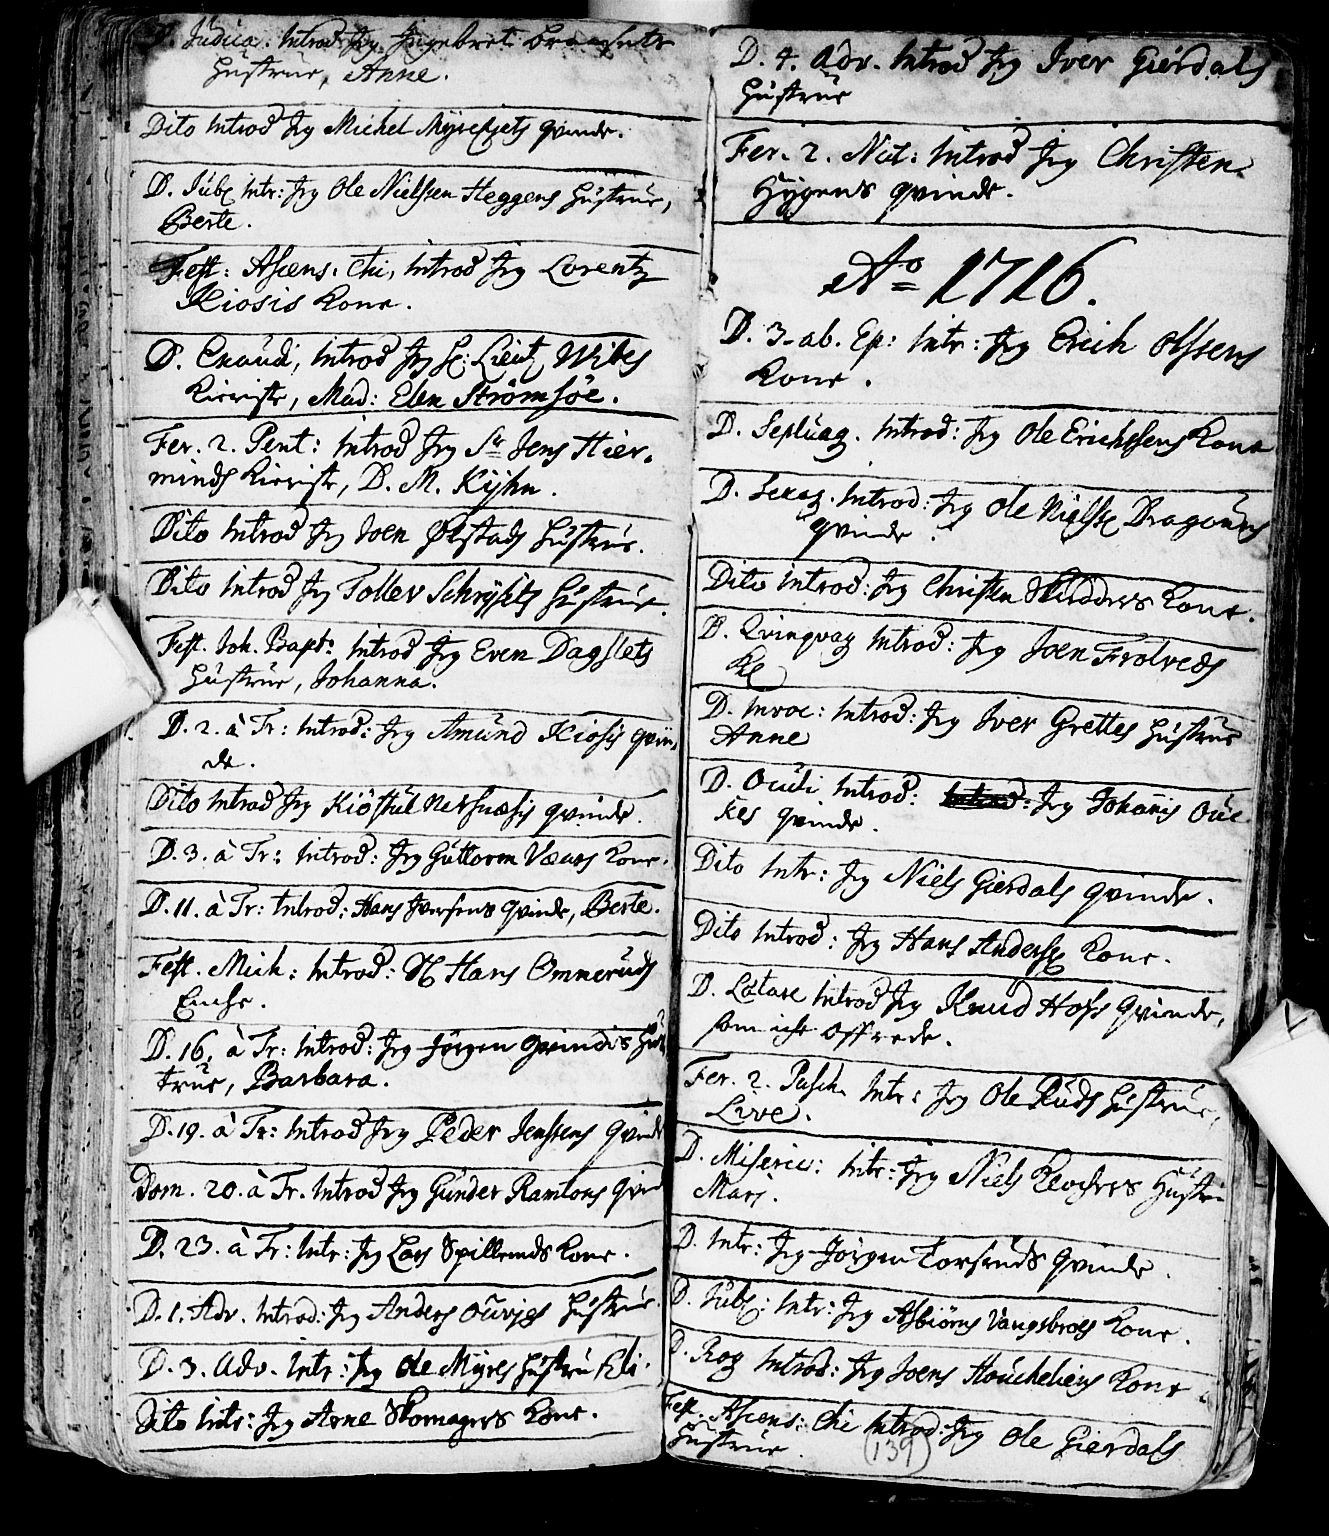 D. Judica. Introd: Jeg Ingebret
Hustrue, Anne.
Dito Introd Jeg Michel Myresjets qvinde.
D. Jubil Intr: Jeg Ole Nielssen Heggens Hustrue,
Berte.
Fest: Ascens. Chi, Introd Jeg Lorentz
Kiosis Kone.
D. Exaudi, Introd Jeg Sr: Lieut Wibes
Kieriste, Mad: Elen Strømsöe.
Fer. 2. Pent: Introd Jeg Sr Jens Hier-
minds Kieriste, D. M. Kyhn.
Dito Introd Jeg Joen Ølstads Hustrue.
Dito Introd Jeg Tollev Schryssets Hustrue.
Fest. Joh. Bapt: Introd Jeg Even Dagslets
Hustrue, Johanna.
D. 2. à Tr: Introd: Jeg Amund Kiosis qvin-
de.
Dito Introd Jeg Kiöstul Nersnæsis qvinde.
D. 3. à Tr: Introd: Jeg Guttorm Vears Kone.
D. 11. à Tr: Introd: Hans Iversens qvinde, Berte.
Fest. Mich: Introd: H Hans Ommeruds
Enche.
D. 16. à Tr: Introd: Jeg Jörgen Gvindis Hus-
true, Barbara.
D. 19. à Tr: Introd Jeg Peder Jenssens qvinde
Dom. 20. à Tr. Introd Jeg Gunder Ramtons qvin
D. 23. à Tr: Intr: Jeg Lars Spillemds Kone.
D. 1. Adv. Introd: Jeg Anders Ouvjes Hustrue.
D. 3. Adv. Intr: Jeg Ole Myres Hustru Eli.
Dito Intr: Jeg Arne Skomagers Kone.
D. 4. Adv. Introd Jeg Iver Gierdals
Hustrue
Fer. 2. Nat: Introd Jeg Christen
Hygens qvinde.
Ao 1716.
D. 3. ab. Ep: Intr: Jeg Erich Olssens
Kone.
D. Septuag. Introd: Jeg Ole Erichssens Kone
D. Sexag. Introd: Jeg Ole Nielss Dragouns
qvinde.
Dito Introd: Jeg Christen Skredders Kone.
D. Qvinqvag Introd: Jeg Joen Frölveds
Ko
D. Invoc: Introd: Jeg Iver Grettes Hustrue
Anne
D. Oculi Introd: Introd: Jeg Johanis Oul-
kes qvinde.
Dito Intr: Jeg Niels Gierdals qvinde.
Dito Introd: Jeg Hans Anderss Kone.
D. Lætare Introd Jeg Knud Hofs Qvinde,
som iche offrede.
Fer. 2. Pasch. Intr: Jeg Ole Ruds Hustrue,
Live.
D. Miseric: Intr: Jeg Niels Klochers Hustru
Mari.
D. Intr: Jeg Jörgen Torsruds Qvinde.
D. Jubil: Intr: Jeg Asbiörns Vangsbroes Kone.
D. Rog Introd: Jeg Joens Houcheliens Kone.
Fest. Ascens: Chi Introd: Jeg Ole Gierdals
Hustrue.
139